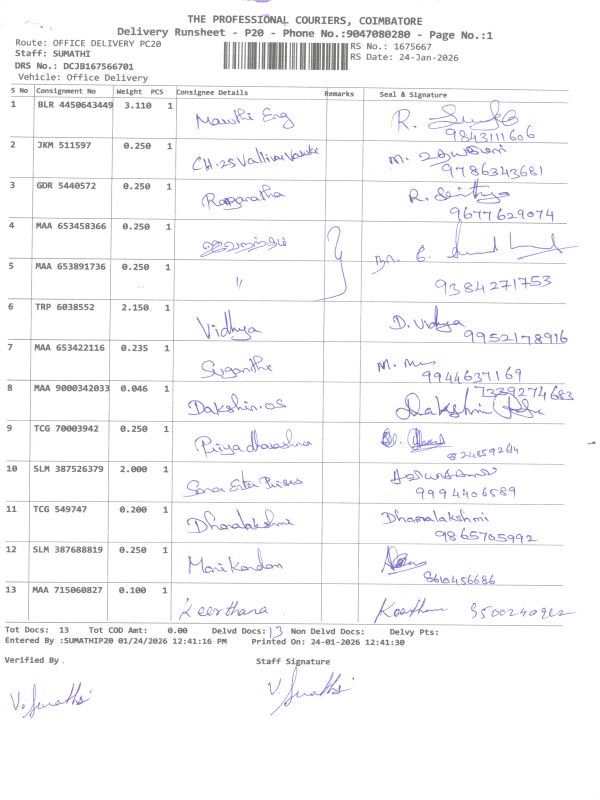 THE PROFESSIONAL COURIERS, COIMBATORE
Delivery Runsheet - P20 - Phone No.:9047080280 - Page No.:1
Route: OFFICE DELIVERY PC20
RS No.: 1675667
Staff: SUMATHI
RS Date: 24-Jan-2026
DRS No.: DCJB167566701
Vehicle: Office Delivery
S No Consignment No Weight PCS Consignee Details Remarks Seal & Signature
1 BLR 4450643449 3.110 1 Eng R.
9843111606
2 JKM 511597 0.250 1 CH-25 M.
9786343681
3 GDR 5440572 0.250 1 R.
9677629074
4 MAA 653458366 0.250 1
5 MAA 653891736 0.250 1 〃 9384271753
6 TRP 6038552 2.150 1 Vidhya D. Vidhya
9952178916
7 MAA 653422116 0.235 1 Suganthi M.
9944637169
8 MAA 9000342033 0.046 1 7339274683
Dakshin
9 TCG 70003942 0.250 1
10 SLM 387526379 2.000 1
9994406589
11 TCG 549747 0.200 1 Dhanalakshmi Dhanalakshmi
9865705992
12 SLM 387688819 0.250 1 Manikandan
8610456686
13 MAA 715060827 0.100 1 Keerthana
Tot Docs: 13 Tot COD Amt: 0.00 Delvd Docs: 13 Non Delvd Docs: Delvy Pts:
Entered By :SUMATHIP20 01/24/2026 12:41:16 PM Printed On: 24-01-2026 12:41:30
Verified By Staff Signature
V. Sumathi V. Sumathi